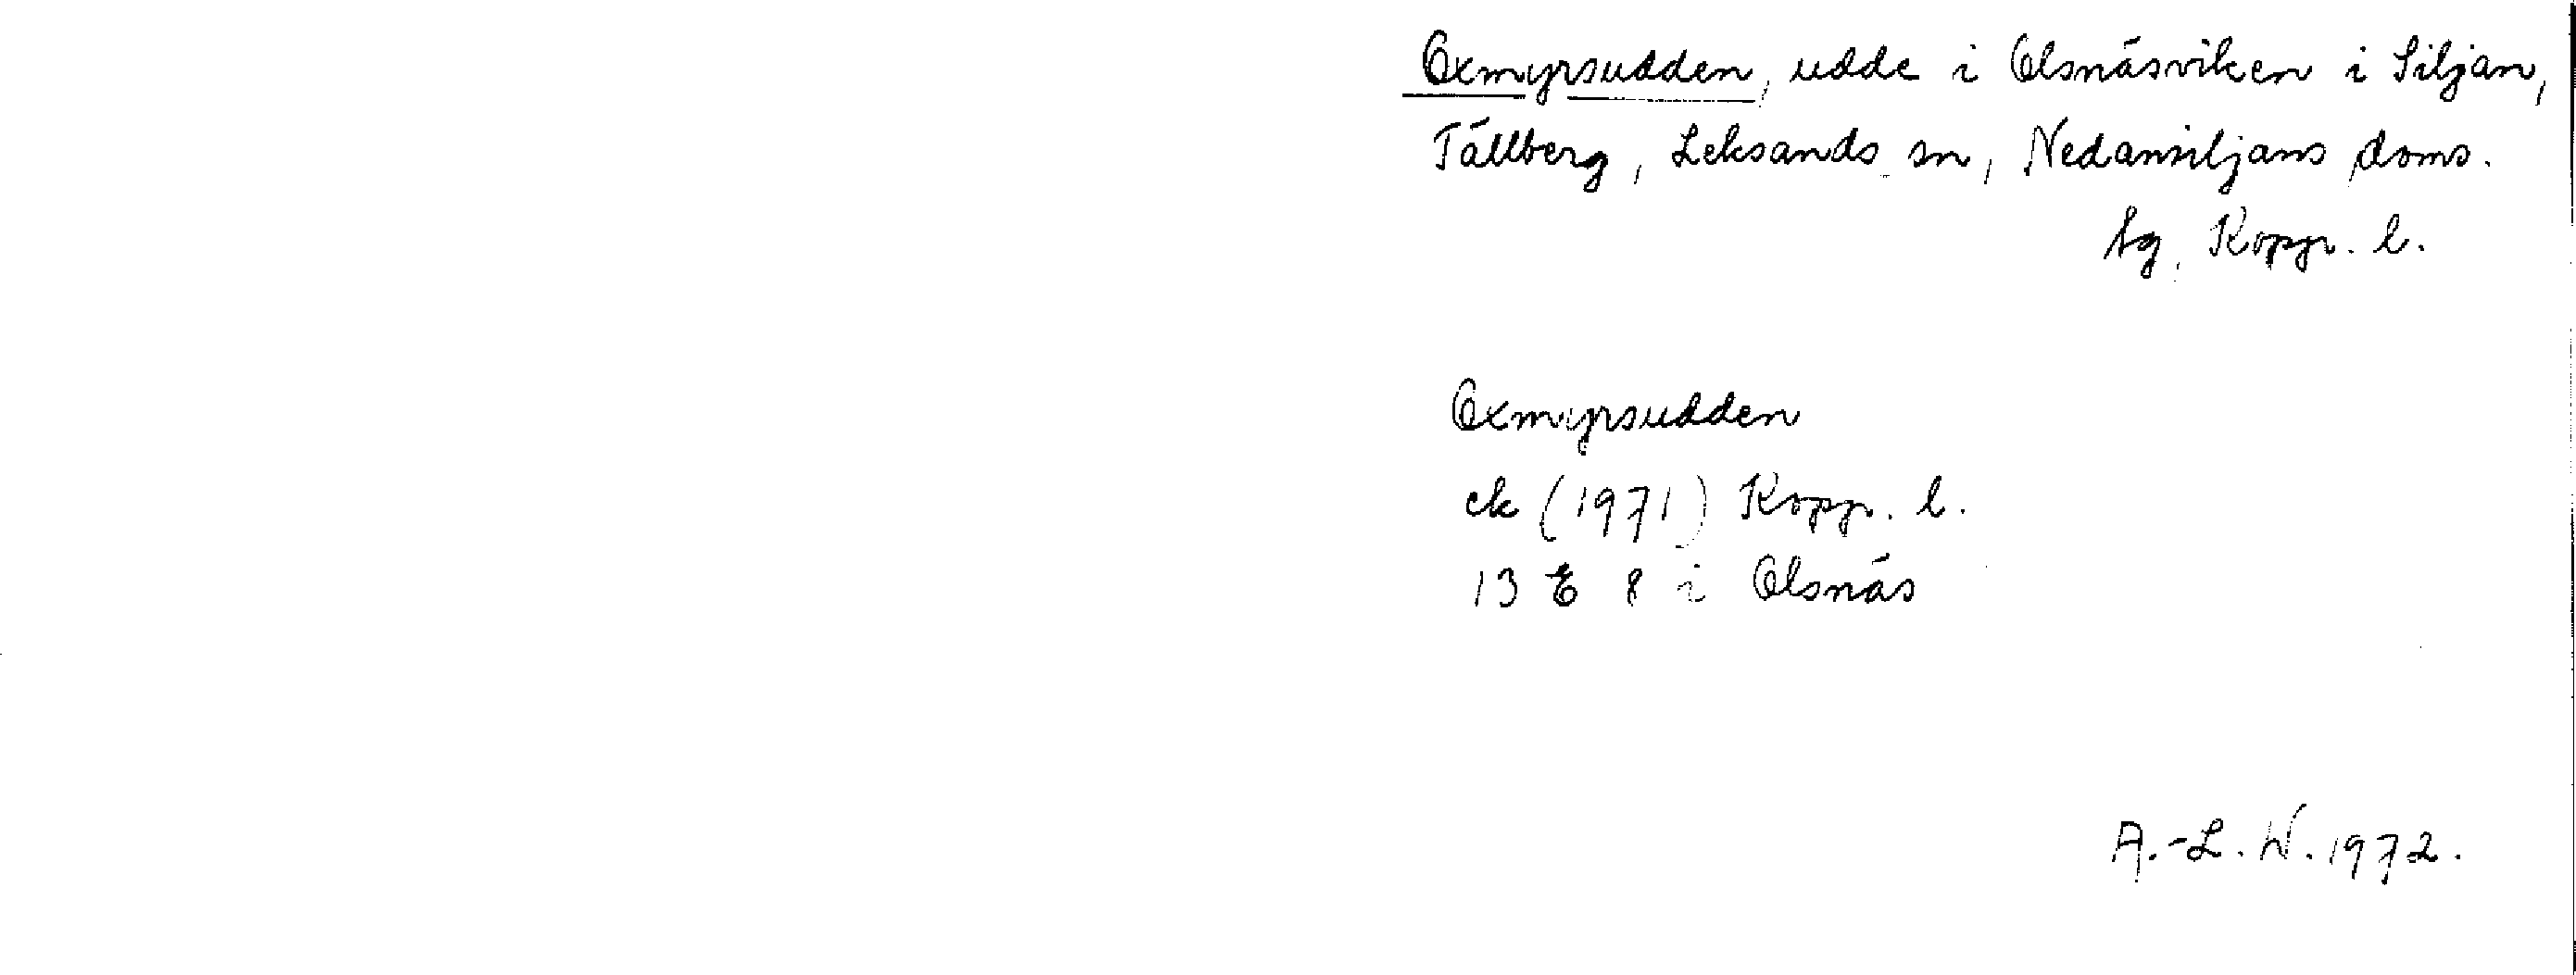 Oxmyrsudden, udde i Olsnäsviken i Siljan,
Tällberg, Leksands sn, Nedansiljans doms.
sg, Kopp. l.
Oxmyrsudden
ek (1971) Kopp. l.
13 E 8 i Olsnäs
A.-L. W. 1972.